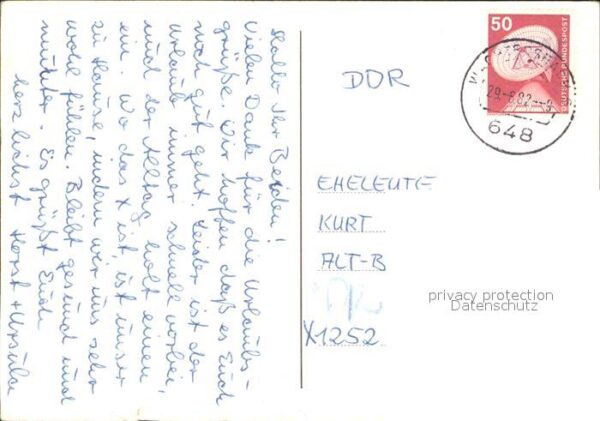 Hallo Ihr Beiden!
Vielen Dank für die Urlaubs-
grüße. Wir hoffen daß es Euch
noch gut geht. Leider ist der
Urlaub immer schnell vorbei,
und der Alltag holt einen
ein. Wo das x ist, ist unser
zu Hause, indem wir uns sehr
wohl fühlen. Bleibt gesund und
munter. Es grüßt Euch
herzlichst Horst + Ursula
50
DEUTSCHE BUNDESPOST
648
DDR
EHELEUTE
KURT
ALT-B
privacy protection
Datenschutz
X1252